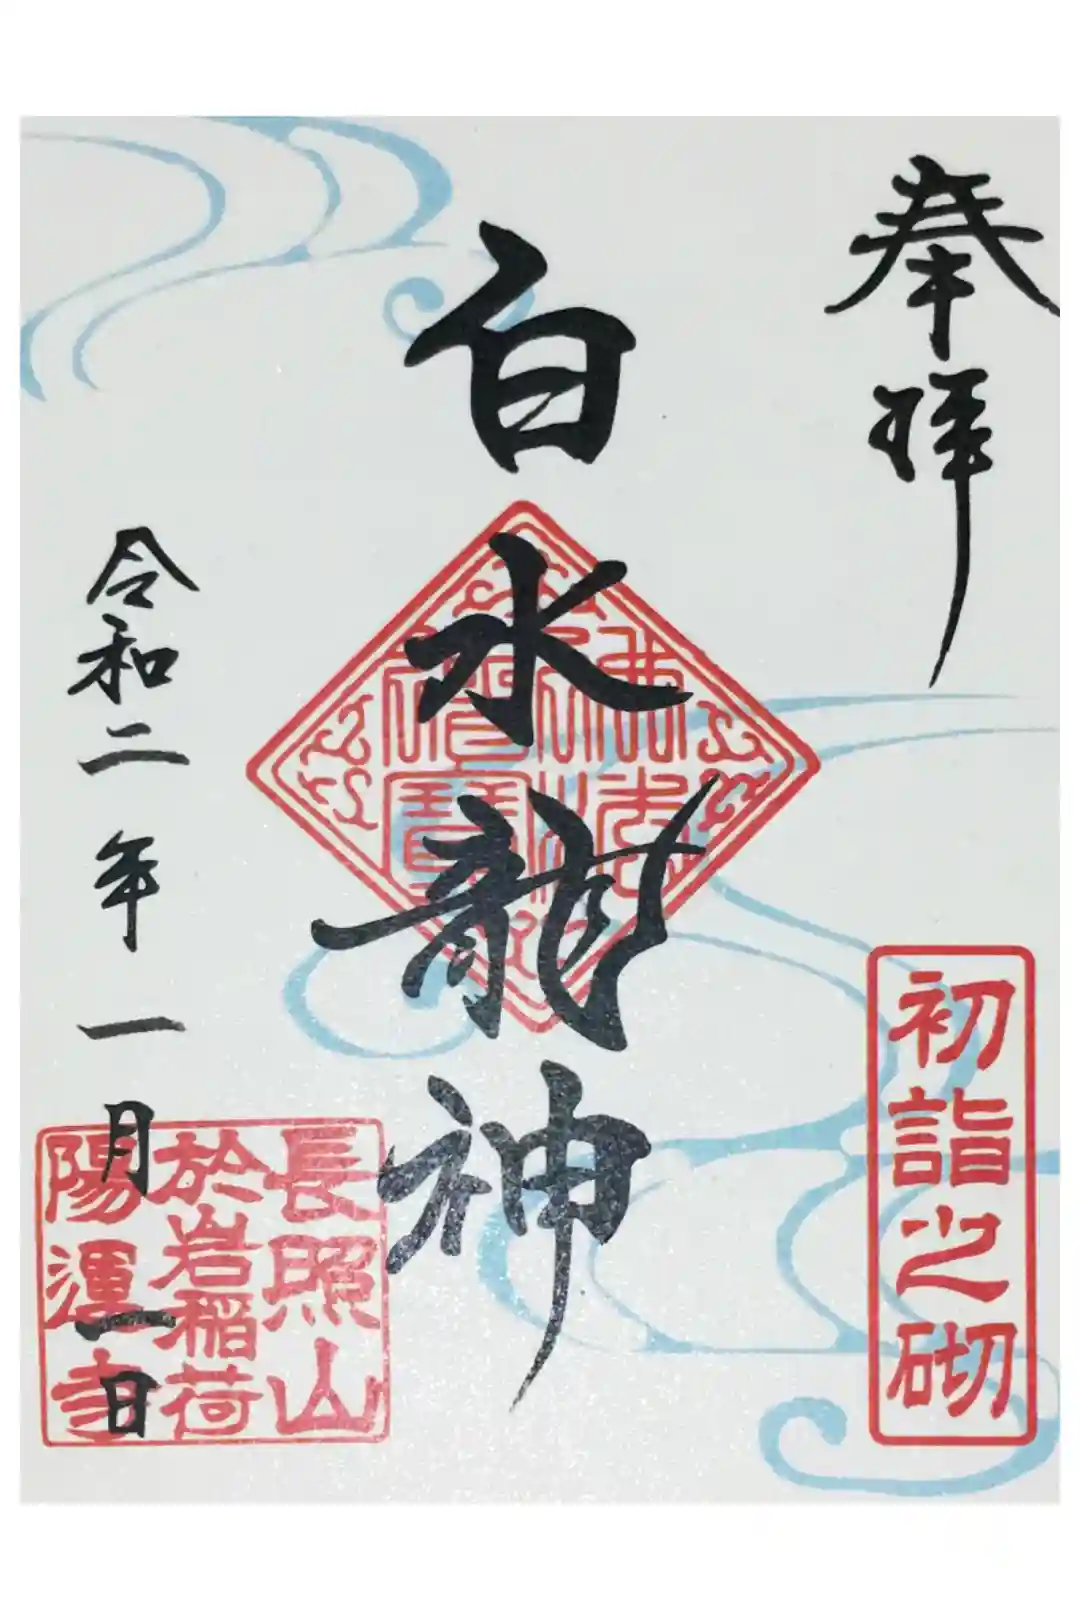 奉拝
初詣之砌
白水龍神
佛法僧寶
令和二年一月一日
長照山
於岩稲荷
陽運寺